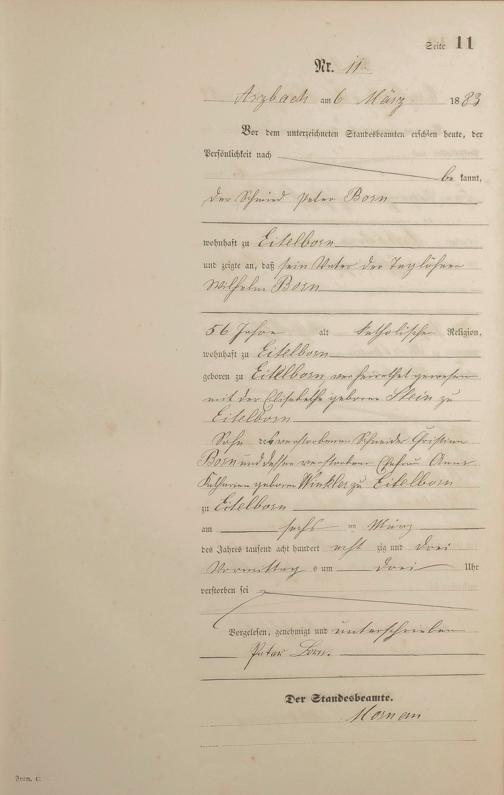 Seite 11
Nr. 11.
Arzbach am 6 März 1883
Vor dem unterzeichneten Standesbeamten erschien heute, der
Persönlichkeit nach
be kannt,
der Schmied Peter Born
wohnhaft zu Eitelborn
und zeigte an, daß sein Vater der Taglöhner
Wilhelm Born
56 Jahre alt katholischer Religion,
wohnhaft zu Eitelborn
geboren zu Eitelborn verheirathet gewesen
mit der Elisabethe geborene Stein zu
Eitelborn
Sohn des verstorbenen Schneider Christian
Born und dessen verstorbener Ehefrau Anna
Katharina geborene Winkler zu Eitelborn
zu Eitelborn
am sechs ten März
des Jahres tausend acht hundert acht zig und drei
Vormittag s um drei Uhr
verstorben sei
Vorgelesen, genehmigt und unterschrieben
Peter Born.
Der Standesbeamte.
Form. C.